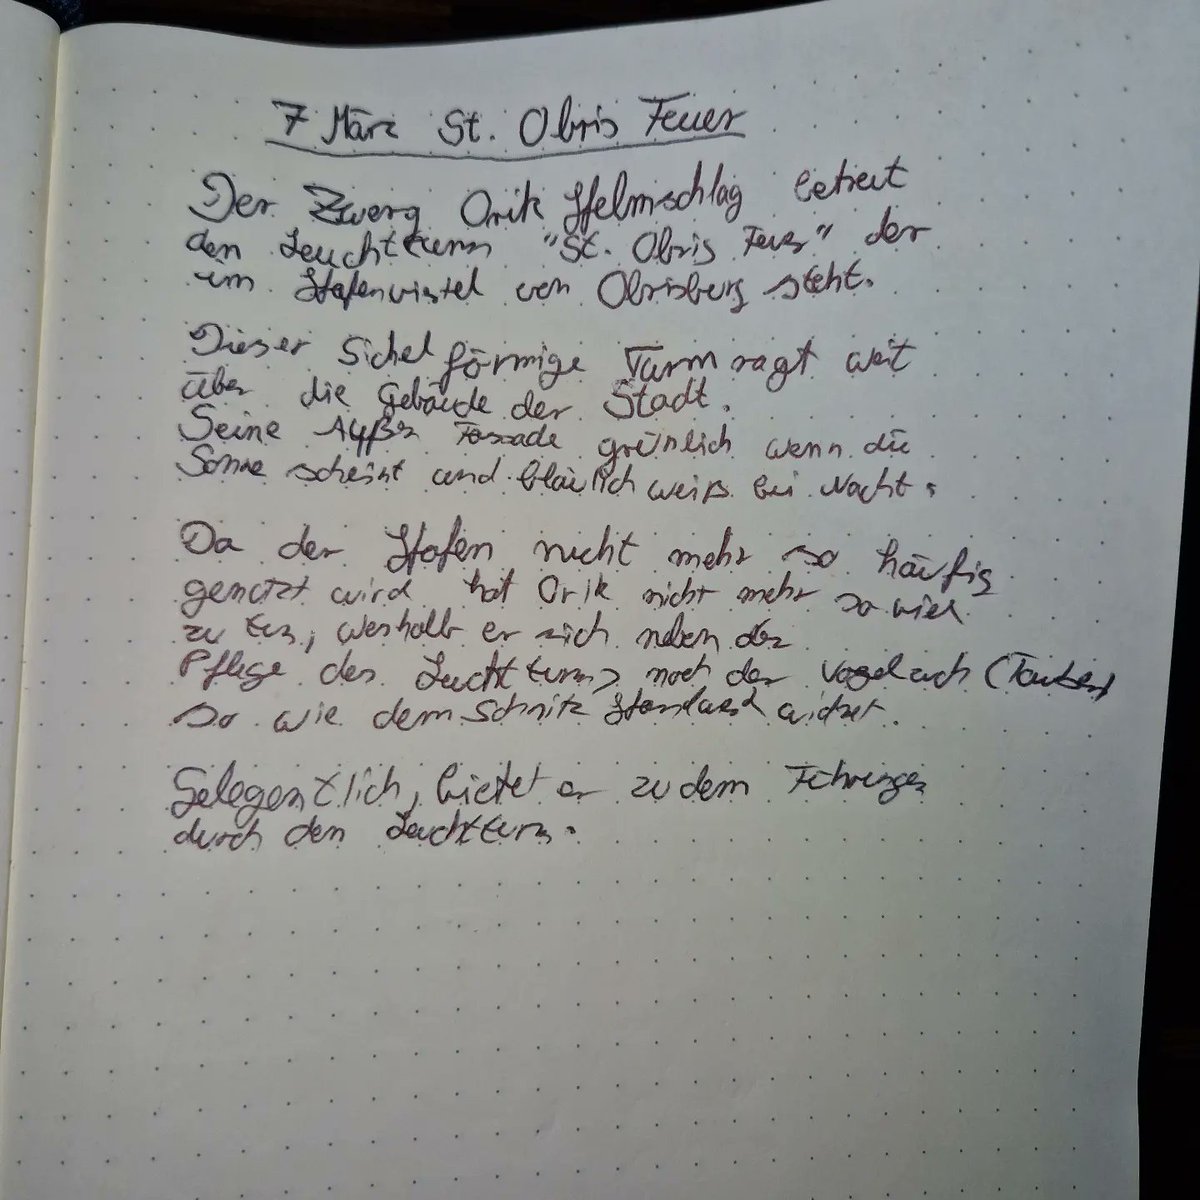 7 März St. Obris Feuer
Der Zwerg Orik Helmschlag betreut
den Leuchtturm "St. Obris Feuer" der
im Hafenviertel von Obrisburg steht.
Dieser Sichel förmige Turm ragt weit
über die Gebäude der Stadt.
Seine Außer Fassade grünlich wenn die
Sonne scheint und bläulich weiß bei Nacht.
Da der Hafen nicht mehr so häufig
genutzt wird hat Orik nicht mehr so viel
zu tun, weshalb er sich neben der
Pflege des Leuchtturms noch der Vogelzucht (Tauben)
so wie dem Schnitz Handwerk widmet.
Gelegentlich, bietet er zu dem Führungen
durch den Leuchtturm.